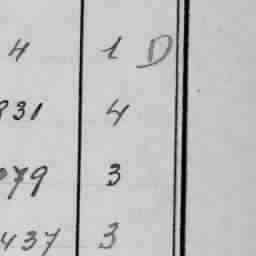 4 1 D
831 4
79 3
437 3